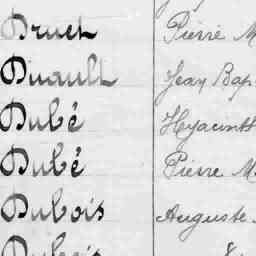 Druet Pierre M
Duault Jean Bap
Dubé Hyacinth
Dubé Pierre M
Dubois Auguste
Dubois